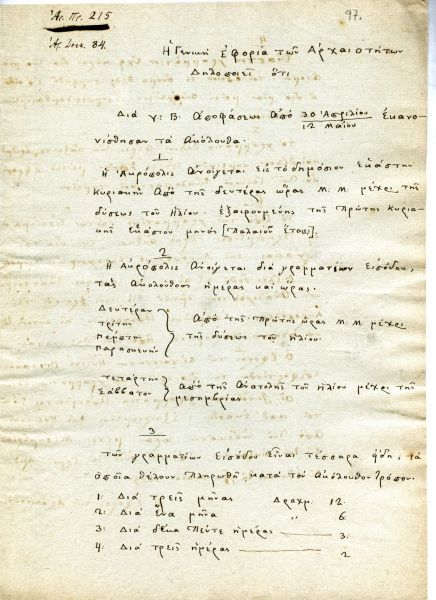 Ἀρ. Πρ. 215
97.
Ἀ. 84.
Ἡ Γενικὴ Ἐφορία τῶν Ἀρχαιοτήτων
Δηλοποιεῖ ὅτι
Διὰ γ: Β: ἀποφάσεως ἀπὸ 30 Ἀπριλίου / 12 Μαΐου ἐκανο-
νίσθησαν τὰ ἀκόλουθα.
1
Ἡ Ἀκρόπολις ἀνοίγεται εἰς τὸ δημόσιον ἑκάστην
Κυριακὴν ἀπὸ τῆς δευτέρας ὥρας Μ. Μ. μέχρι τῆς
δύσεως τοῦ ἡλίου ἐξαιρουμένης τῆς πρώτης Κυρια-
κῆς ἑκάστου μηνὸς [παλαιοῦ ἔτους].
2
Ἡ Ἀκρόπολις ἀνοίγεται διὰ γραμματίων εἰσόδου,
τὰς ἀκολούθους ἡμέρας καὶ ὥρας.
Δευτέραν
Τρίτην
Πέμπτην
Παρασκευὴν
ἀπὸ τῆς πρώτης ὥρας Μ. Μ. μέχρι
τῆς δύσεως τοῦ ἡλίου.
Τετάρτην
Σάββατον
ἀπὸ τῆς ἀνατολῆς τοῦ ἡλίου μέχρι τῆς
μεσημβρίας
3
Τῶν γραμματίων εἰσόδου εἶναι τέσσαρα ἤδη, τὰ
ὁποῖα θέλουν πληρωθῆ κατὰ τὸν ἀκόλουθον τρόπον.
1: Διὰ τρεῖς μῆνας Δραχμ. 12.
2: Διὰ ἕνα μῆνα " 6
3: Διὰ δέκα πέντε ἡμέρας 3.
4. Διὰ τρεῖς ἡμέρας 2